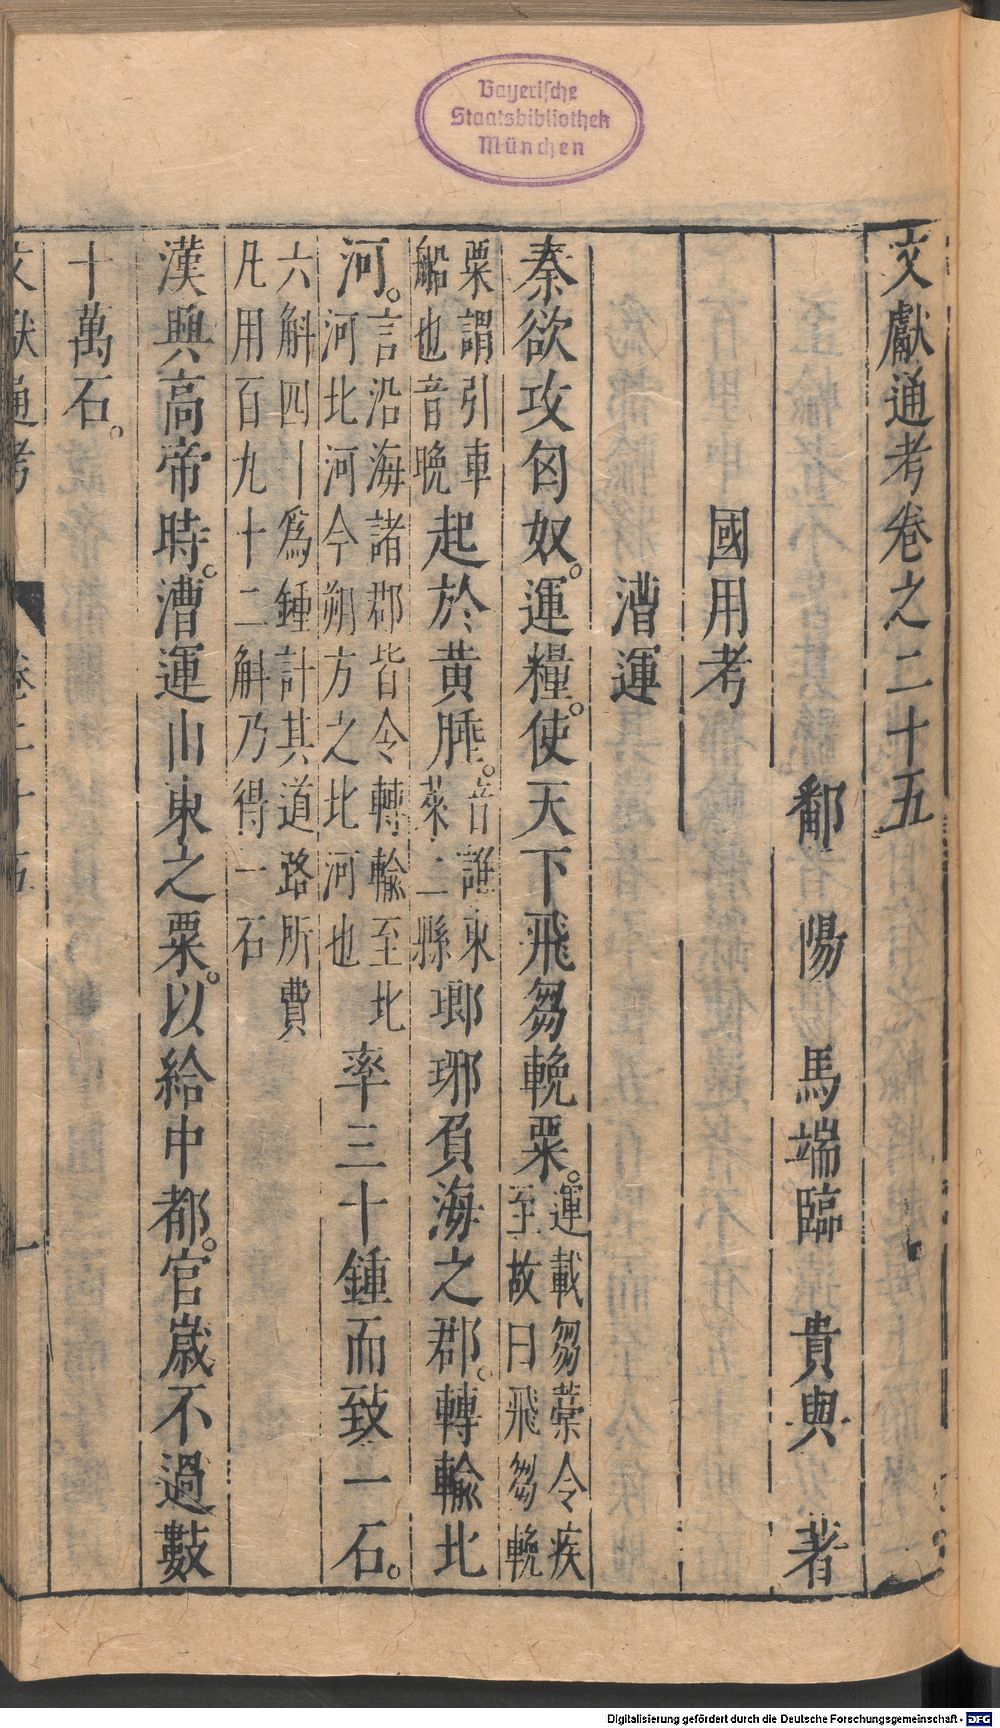 Bayerische
Staatsbibliothek
München
文獻通考卷之二十五
鄱陽馬端臨貴與著
國用考
漕運
秦欲攻匈奴。運糧。使天下飛芻輓粟。運載芻藁令疾
至故曰飛芻輓
粟謂引車
船也音晚
起於黄腄。音誰東
萊二縣
瑯琊負海之郡。轉輸北
河。言沿海諸郡皆令轉輸至北
河河北河今朔方之北河也
率三十鍾而致一石。
六斛四斗爲鍾計其道路所費
凡用百九十二斛乃得一石
漢興高帝時。漕運山東之粟。以給中都。官嵗不過數
十萬石。
文獻通考
卷二十五
一
Digitalisierung gefördert durch die Deutsche Forschungsgemeinschaft - DFG